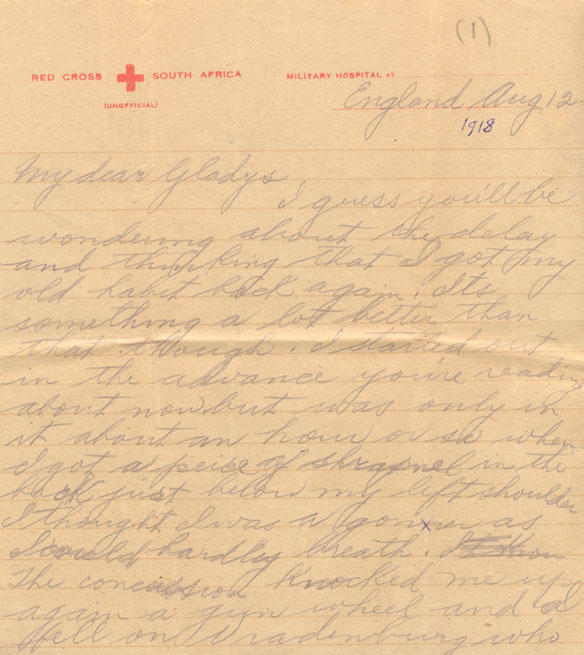 (1)
RED CROSS SOUTH AFRICA MILITARY HOSPITAL at
(UNOFFICIAL)
England Aug 12
1918
My dear Gladys
I guess you'll be
wondering about the delay
and thinking that I got my
old habit back again. Its
something a lot better than
that though. I started out
in the advance you're reading
about now but was only in
it about an hour or so when
I got a peice of shrapnel in the
back just below my left shoulder
I thought I was a gonner as
I could hardley breath.
The concussion knocked me up
again a gun wheel and I
fell on Vradenburg who